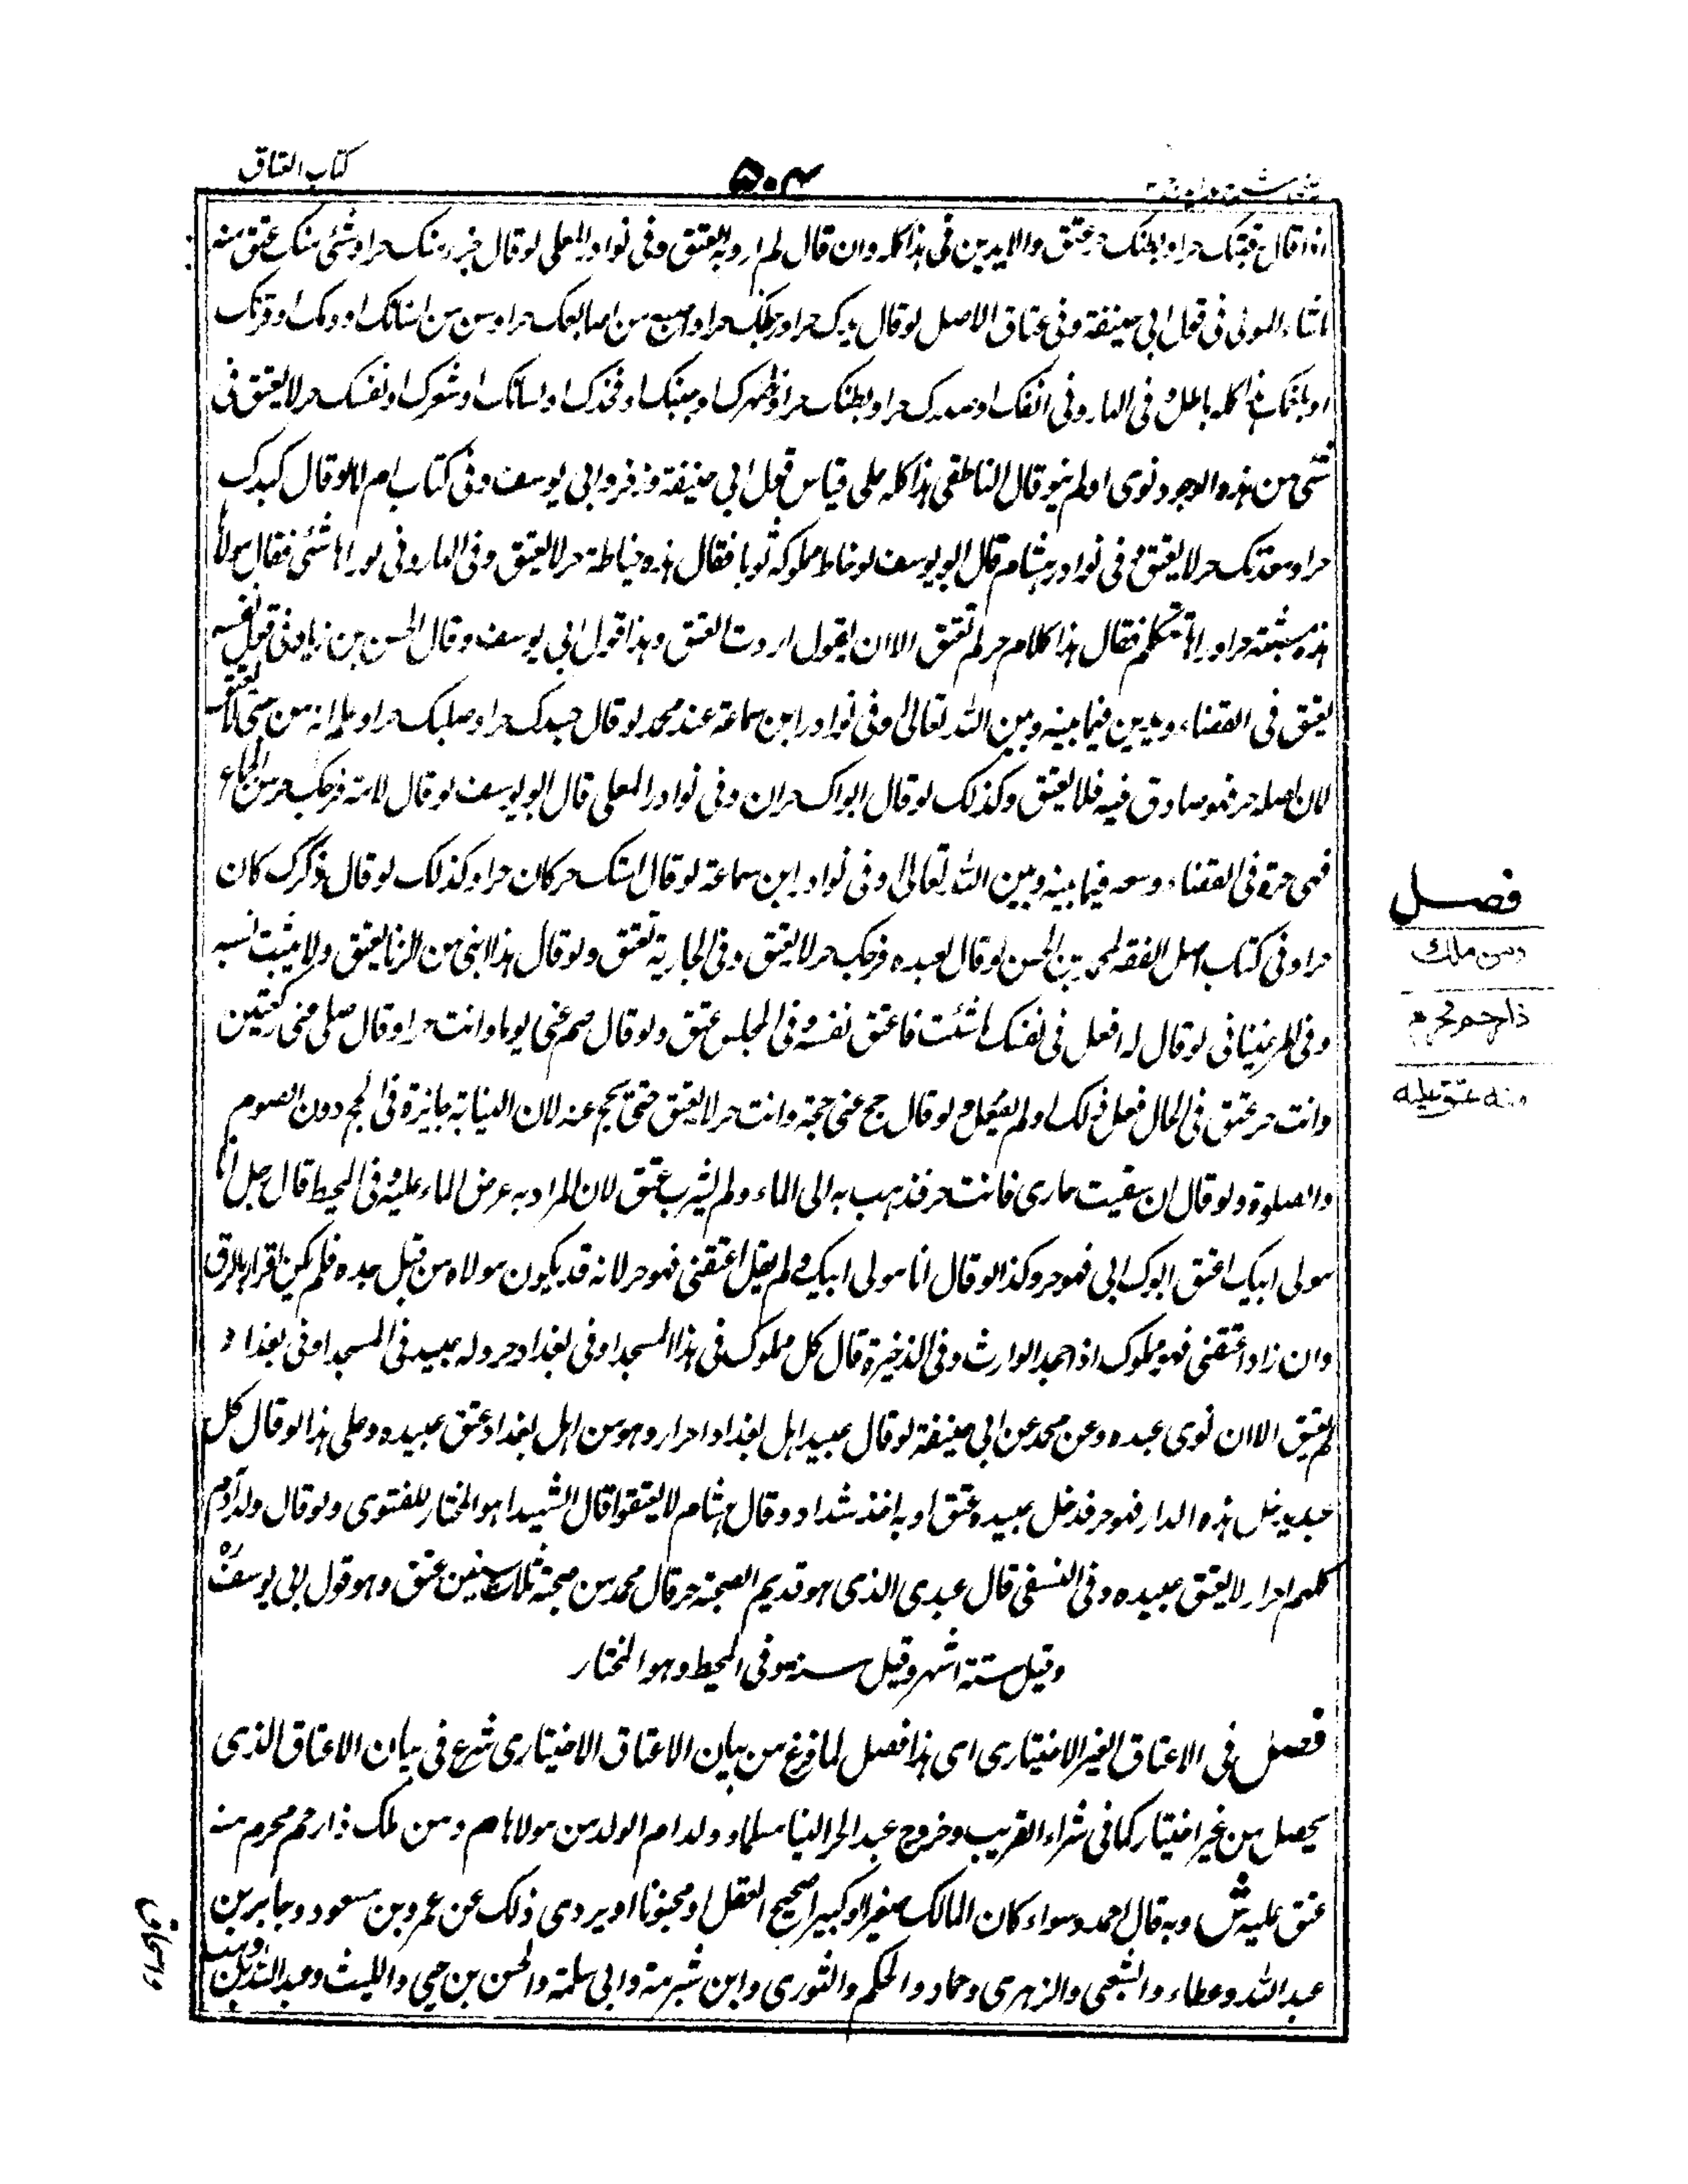 كتاب العتاق
۵۰۴
اذا قال رقبتك حر او بطنك حر عتق والا يدين فى هذا كله وان قال لم ارد به العتق وفى نوادر المعلى لو قال جزء منك حر او شئ منك عتق منه
ما شاء المولى فى قول ابى حنيفة وفى عتاق الاصل لو قال يدك حر او رجلك حر او اصبع من اصابعك حر او سن من اسنانك او دمك او
كله باطل وفى الهارونى انفك او صدرك حر او بطنك حر او ظهرك او جنبك او فخذك او لسانك او شعرك او نفسك حر لا يعتق فى
شئ من هذه الوجوه نوى او لم ينو قال الناطقى هذا كله على قياس قول ابى حنيفة وزفر وابى يوسف وفى كتاب ام لو قال كبدك
حر او معدتك حر لا يعتق وفى نوادر هشام قال ابو يوسف لو خاط مملوكه ثوبا فقال هذه خياطة حر لا يعتق وفى الهارونى لو راها تمشى فقال مولاها
هذه مشية حر او راها تتكلم فقال هذا كلام حر لم تعتق الا ان يقول اردت العتق وهذا قول ابى يوسف وقال الحسن بن زياد فى قول زفر
يعتق فى القضاء ويدين فيما بينه وبين الله تعالى وفى نوادر ابن سماعة عند محمد لو قال جسدك حر او صلبك حر او علم انه من سبى لا يعتق
لان اصله حر فهو صادق فيه فلا يعتق وكذلك لو قال ابواك حران وفى نوادر المعلى قال ابو يوسف لو قال لامته فرجك حر من الجماع
فهى حرة فى القضاء وسعه فيما بينه وبين الله تعالى وفى نوادر ابن سماعة لو قال استك حر كان حرا وكذلك لو قال ذكرك كان
حرا وفى كتاب اصل الفقه لمحمد بن الحسن لو قال لعبده فرجك حر لا يعتق وفى الجارية تعتق ولو قال هذا ابنى من الزنا يعتق ولا يثبت نسبه
وفى المرغينانى لو قال له افعل فى نفسك ما شئت فاعتق نفسه فى المجلس عتق ولو قال صم عنى يوما وانت حر او قال صلى عنى ركعتين
وانت حر عتق فى الحال فعل ذلك او لم يفعل ولو قال حج عنى حجة وانت حر لا يعتق حتى يحج عنه لان النيابة جائزة فى الحج دون الصوم
والصلوة ولو قال ان سقيت حمارى فانت حر فذهب به الى الماء ولم يشرب عتق لان المراد به عرض الماء عليه وفى المحيط قال رجل انا
مولى ابيك اعتق ابوك ابى فهو حر وكذا لو قال انا مولى ابيك ولم يقل اعتقنى فهو حر لانه قد يكون مولاه من قبل جده فلم يكن اقرارا بالرق
وان زاد اعتقنى فهو مملوك اذا جحد الوارث وفى الذخيرة قال كل مملوك فى هذا المسجد او فى بغداد حر وله عبيد فى المسجد او فى بغداد
لم يعتق الا ان نوى عبده وعن محمد عن ابى حنيفة لو قال عبيد اهل بغداد احرار وهو من اهل بغداد عتق عبيده وعلى هذا لو قال كل
عبد يدخل هذه الدار فهو حر فدخل عبيده عتق او به اخذ شداد وقال هشام لا يعتقوا قال الشهيد هو المختار للفتوى ولو قال ولد آدم
كلهم احرار لا يعتق عبيده وفى النسفى قال عبدى الذى هو قديم الصحبة حر قال محمد من صحبه ثلاث سنين عتق وهو قول ابى يوسف
وقيل ستة اشهر وقيل سنة وفى المحيط وهو المختار
فصل فى الاعتاق الغير الاختيارى اى هذا فصل لما فرغ من بيان الاعتاق الاختيارى شرع فى بيان الاعتاق الذى
يحصل من غير اختيار كما فى شراء القريب وخروج عبد الحر الينا مسلما وولد ام الولد من مولاها م ومن ملك ذا رحم محرم منه
عتق عليه ش وبه قال احمد وسواء كان المالك صغيرا او كبيرا صحيح العقل او مجنونا ويروى ذلك عن عمر وبن مسعود وجابر بن
عبد الله وعطاء والشعبى والزهرى وحماد والحكم والثورى وابن شبرمة وابى سلمة والحسن بن حيى والليث وعبد الله بن وهب
فصل
ومن ملك
ذا رحم محرم
منه عتق عليه